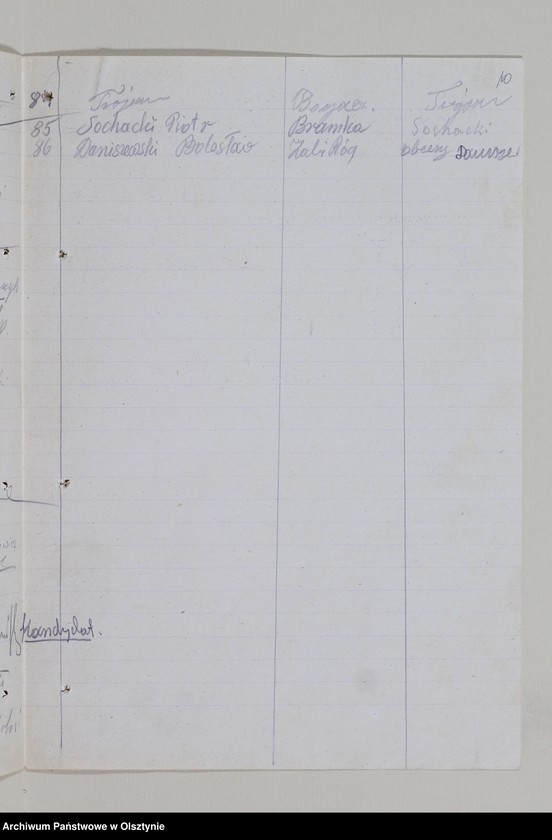 10
84 Trojan
85 Sochacki Piotr Bramka Sochacki
86 Daniszewski Bolesław Żabi Róg obecny
Kandydat.
Archiwum Państwowe w Olsztynie